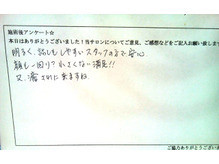 施術後アンケート☆
本日はありがとうございました！当サロンについてご意見、ご感想などをご記入お願い致します
明るく、話しもしやすいスタッフさんで安心
顔も一回り？小さくなり満足!!
又、癒されに来ますね
ご協力ありがとうござい